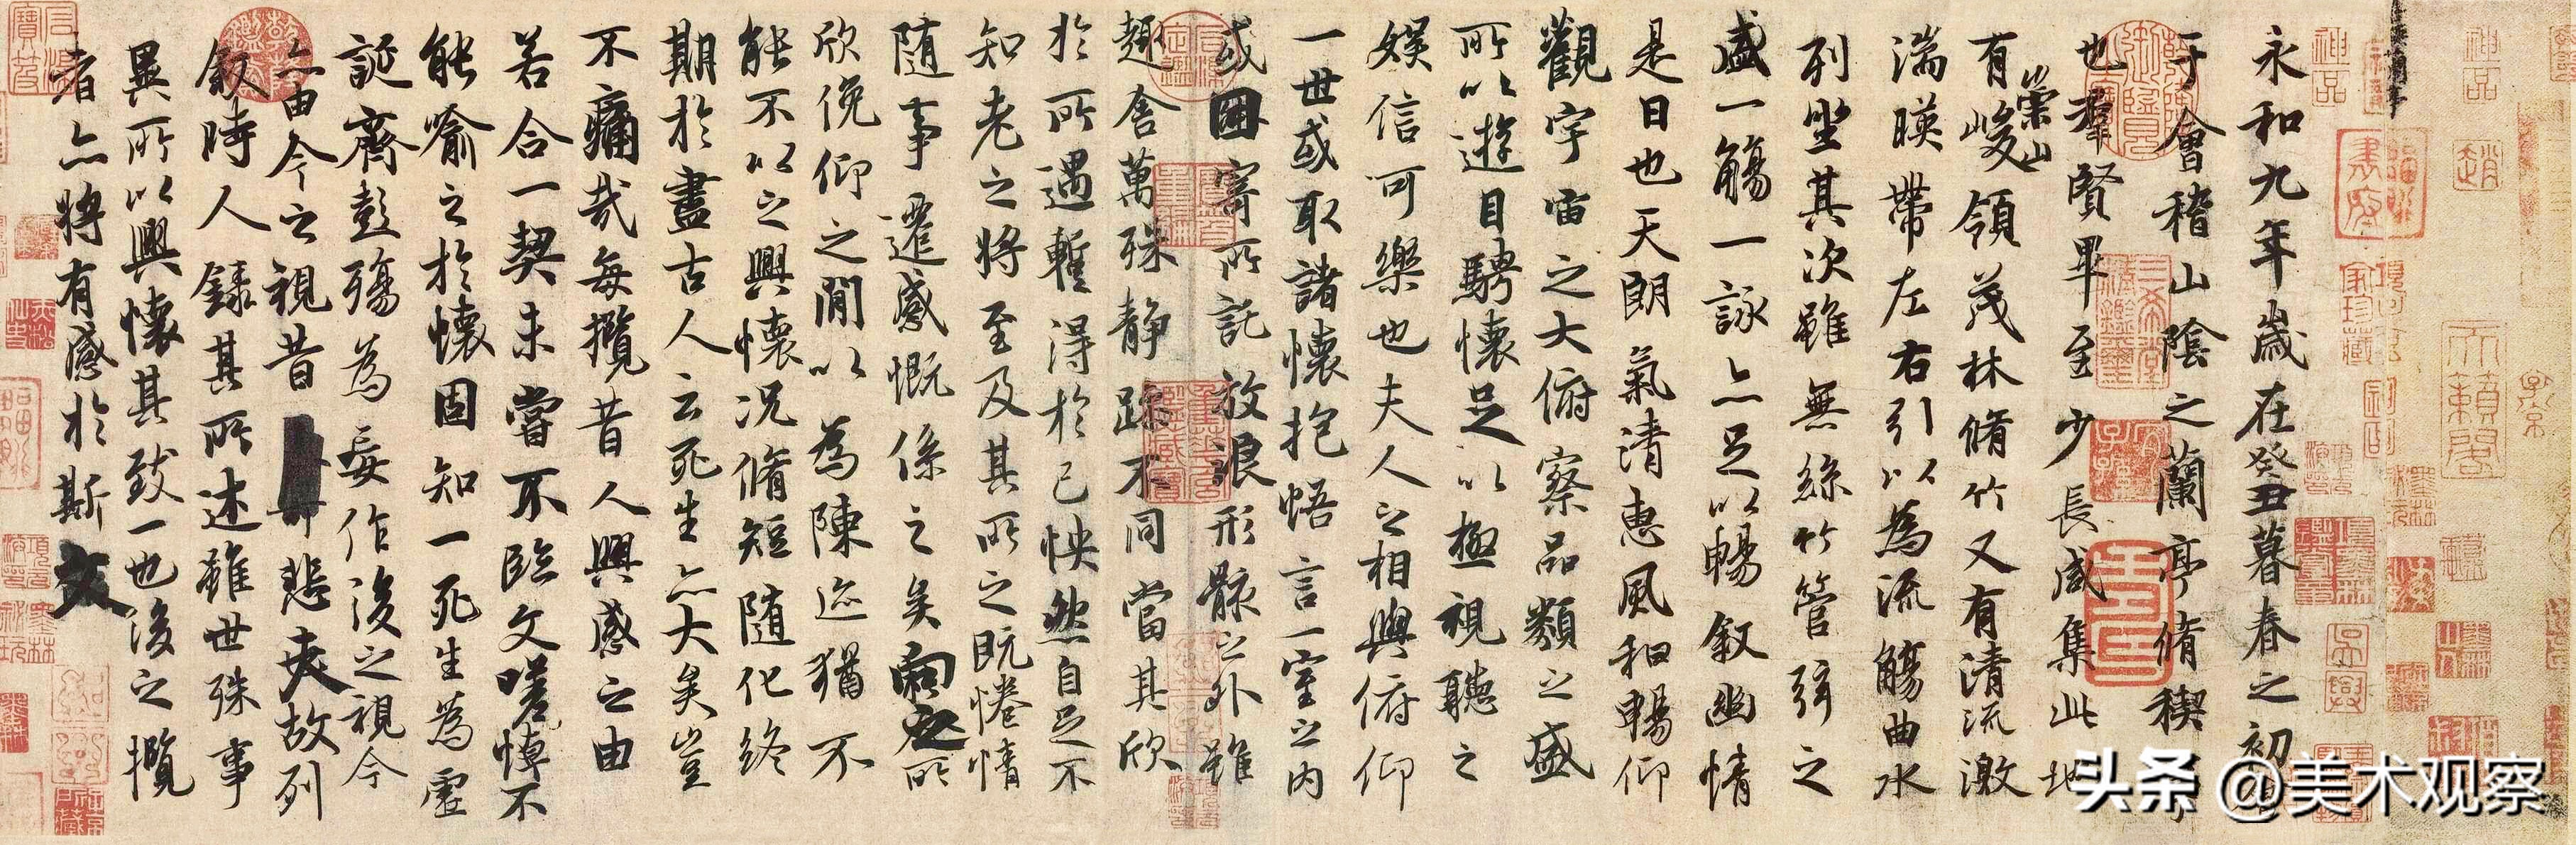 永和九年歲在癸丑暮春之初
于會稽山陰之蘭亭脩稧
也羣賢畢至少長咸集此地
有崇山峻領茂林脩竹又有清流激
湍暎帶左右引以為流觴曲水
列坐其次雖無絲竹管弦之
盛一觴一詠亦足以暢敘幽情
是日也天朗氣清惠風和暢仰
觀宇宙之大俯察品類之盛
所以遊目騁懷足以極視聽之
娛信可樂也夫人之相與俯仰
一世或取諸懷抱悟言一室之內
或因寄所託放浪形骸之外雖
趣舍萬殊靜躁不同當其欣
於所遇暫得於己怏然自足不
知老之將至及其所之既惓情
隨事遷感慨係之矣向之所
欣俛仰之間以為陳迹猶不
能不以之興懷況脩短隨化終
期於盡古人云死生亦大矣豈
不痛哉每攬昔人興感之由
若合一契未嘗不臨文嗟悼不
能喻之於懷固知一死生為虛
誕齊彭殤為妄作後之視今
亦由今之視昔悲夫故列
敘時人錄其所述雖世殊事
異所以興懷其致一也後之攬
者亦將有感於斯文
神品
頭條 @美术观察